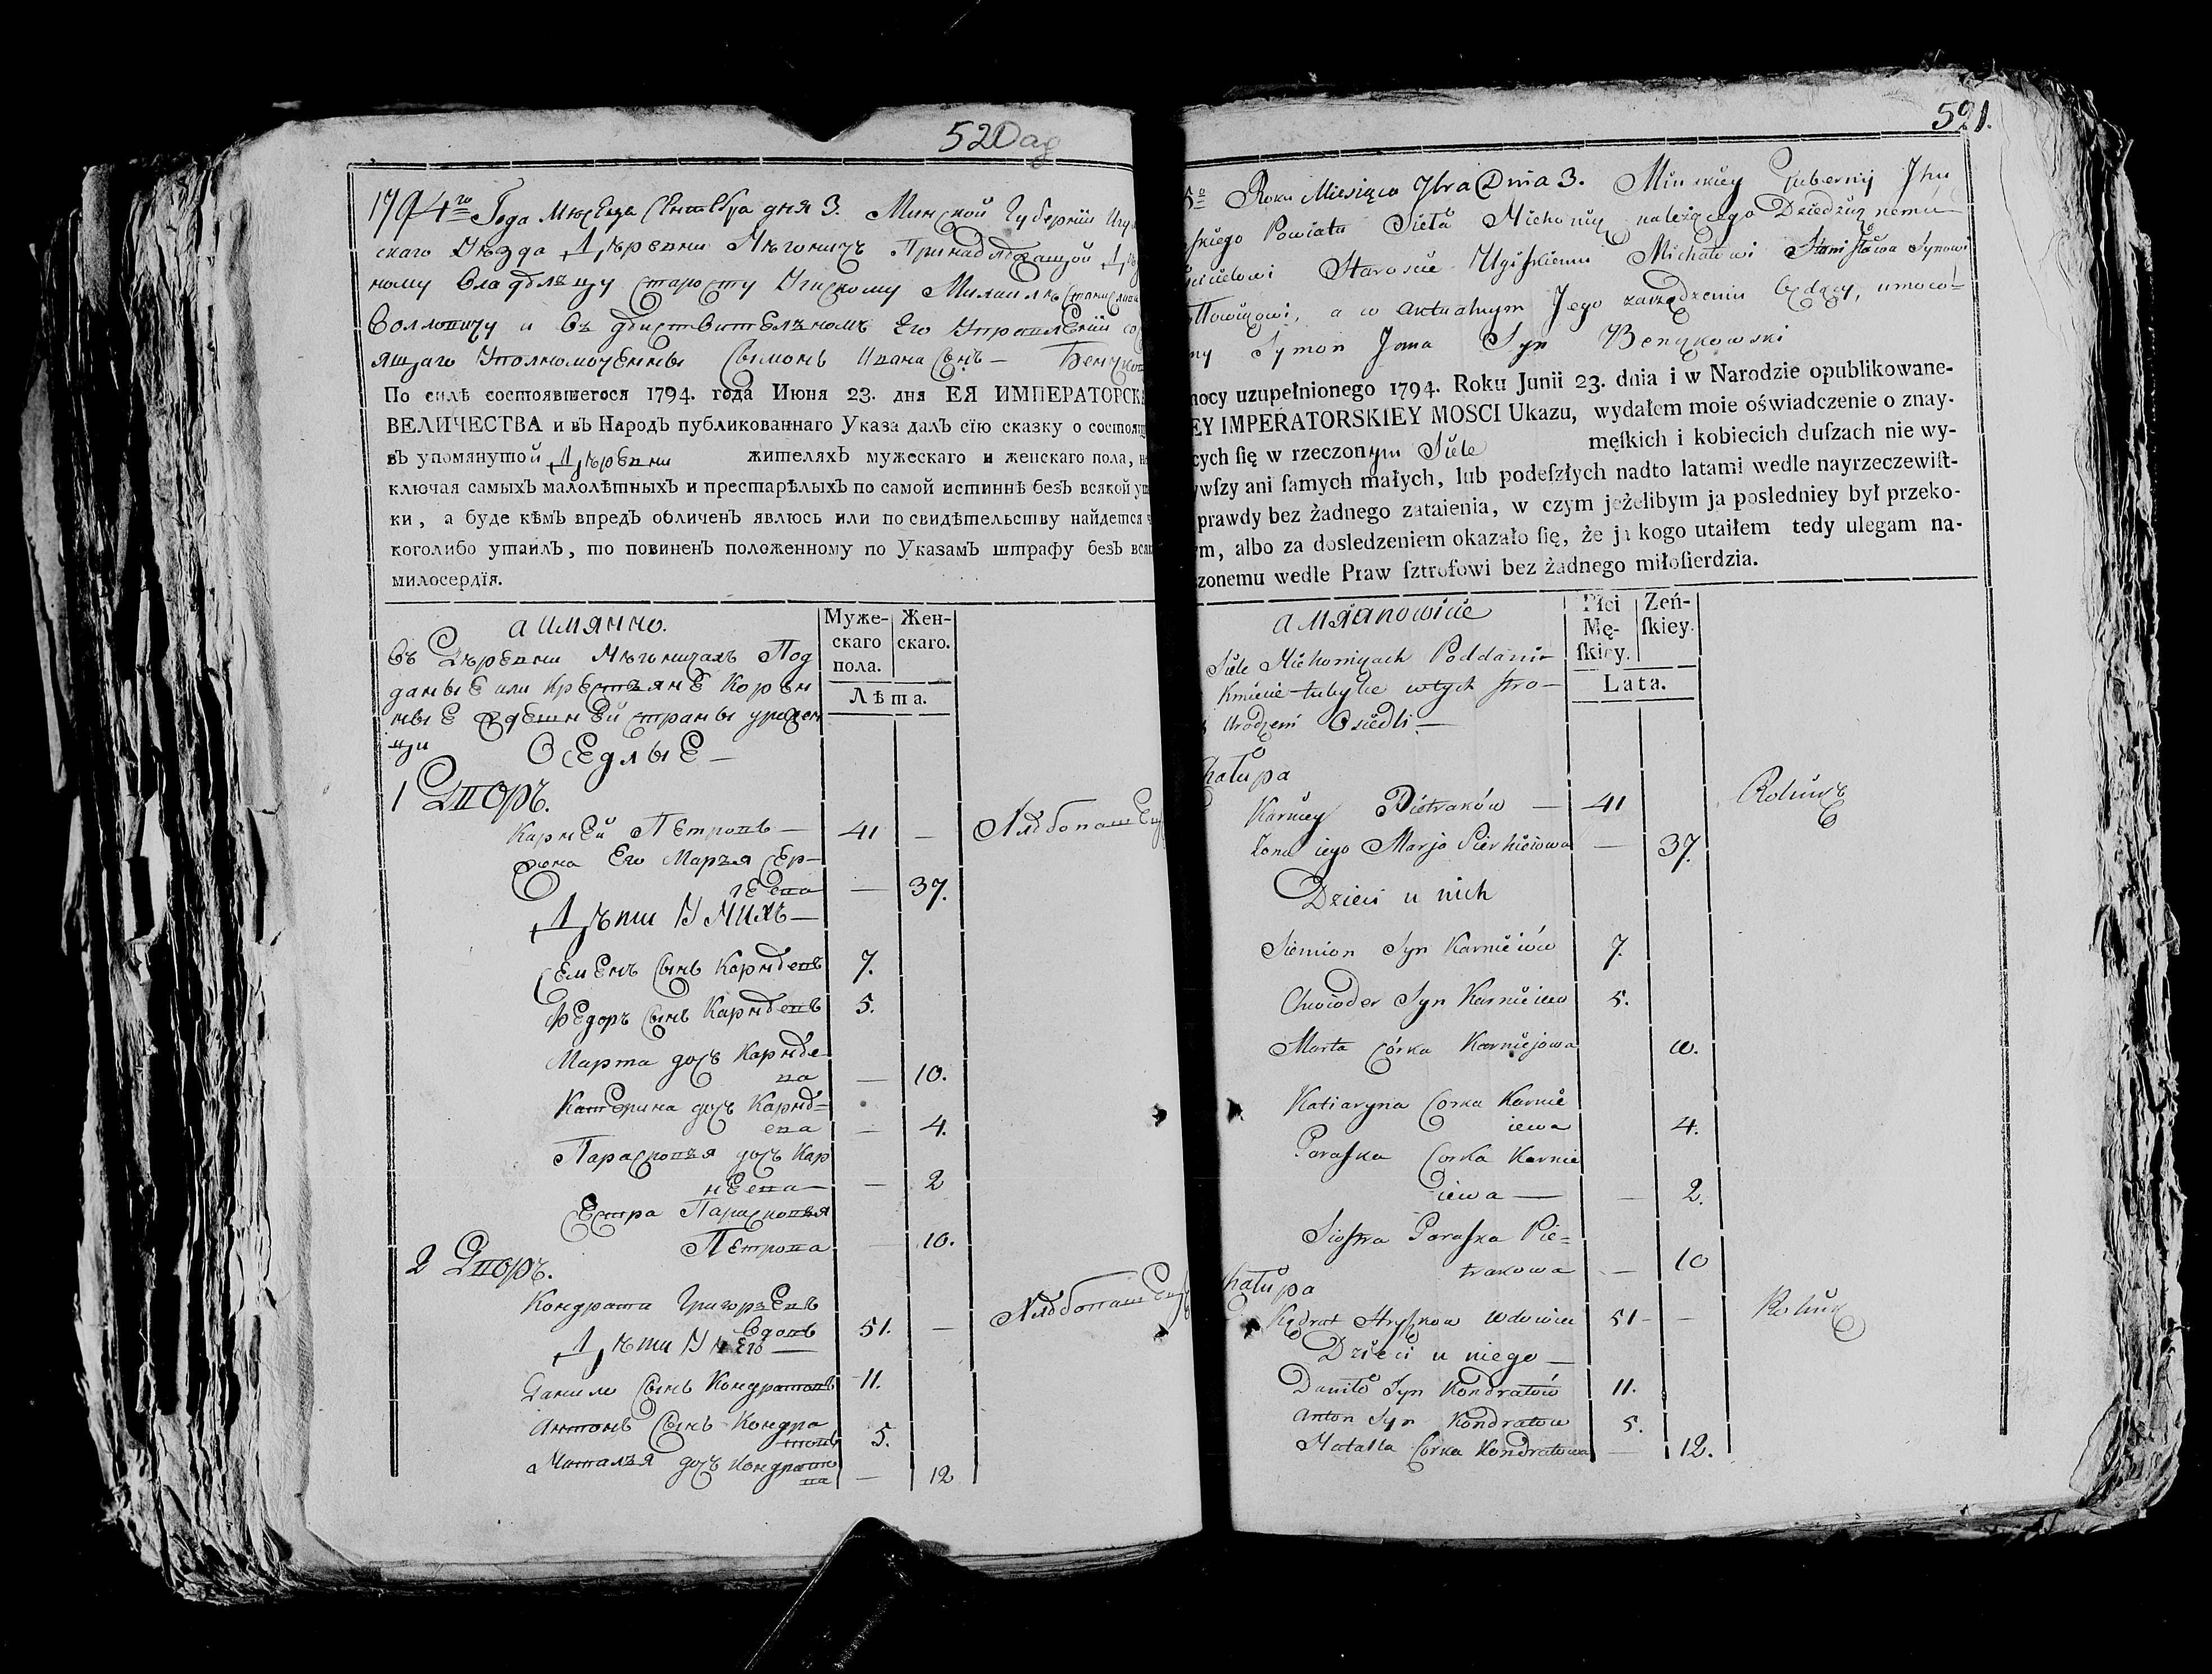 520
1794го Года Мѣсеца Сентебра дня 3. Минской Губернии
скаго Уѣзда Дѣревни Мѣгоничъ Принадлежащой
ному Владѣлцу старосту Угискому Михаилѣ
Воллопичу и въ дѣиствителномъ Его Управлении
ящаго Уполномоченны Сымонъ Ивана Сынъ —
По силѣ состоявшегося 1794. года Июня 23. дня ЕЯ ИМПЕРАТОРСК
ВЕЛИЧЕСТВА и въ Народъ публикованнаго Указа далъ сїю сказку о состоящ
въ упомянутой Дѣревни жителяхъ мужескаго и женскаго пола, н
ключая самыхъ малолѣтныхъ и престарѣлыхъ по самой истиннѣ безъ всякой
ки, а буде кѣмъ впредъ обличенъ явлюсь или по свидѣтельству найдется
коголибо утаилъ, то повиненъ положенному по Указамъ штрафу безъ
милосердїя.
а имянно.
Муже- Жен-
скаго скаго.
пола.
Лѣта.
Въ Дѣревни Мѣгоничахъ Под
даные или Крестъяне Корен
ные здешней страны урожен
цы
Оседлые —
1 Дворъ.
Карней Петровъ — 41 —
Жона Его Маръя Сер-
геева — 37.
Дѣти У нихъ —
Семенъ Сынъ Карнѣевъ 7.
Ѳедоръ Сынъ Карнѣевъ 5.
Марта дочъ Карнѣе
ва — 10.
Катерина дочъ Карнѣ=
ева — 4.
Парасковъя дочъ Кар
неева — — 2
Сестра Парасковъя
Петрова — 10.
2 Дворъ.
Кондрата Григоръевъ
Вдовъ 51. —
Дѣти У него —
Данило Сынъ Кондратовъ 11.
Антонъ Сынъ Кондра
товъ 5.
Маталъя дочъ Кондрато
ва — 12
521.
5o Roku Miesiąca 7bra Dnia 3. Minskiey Gubernij Jhu
skiego Powiatu Sieła Michonicz należącego Dziedzicznemu
Staroscie Ugiskiemu Michałowi Stanisława Synowi
łłowiczowi, a w Aktualnym Jego zarządzeniu będący, umoco-
ny Symon Jana Syn Benczkowski
mocy uzupełnionego 1794. Roku Junii 23. dnia i w Narodzie opublikowane-
EY IMPERATORSKIEY MOSCI Ukazu, wydałem moie oświadczenie o znay-
cych ſię w rzeczonym Siele męſkich i kobiecich duſzach nie wy-
wſzy ani ſamych małych, lub podeſzłych nadto latami wedle nayrzeczewiſt-
prawdy bez żadnego zataienia, w czym jeżelibym ja posledniey był przeko-
m, albo za dosledzeniem okazało ſię, że ja kogo utaiłem tedy ulegam na-
zonemu wedle Praw ſztrofowi bez żadnego miłoſierdzia.
a mianowicie
Płci Żeń-
Mę- ſkiey.
ſkiey.
Lata.
Siele Michoniczach Poddani
Kmiecie tubylce wtych stro-
Urodzeni Osiedli —
hałupa
Karniey Pietraków — 41 Rolnik
Żona iego Marja Sierhiciowa — 37.
Dzieci u nich
Siemion Syn Karnieiów 7.
Chwiodor Syn Karnieiew 5.
Marta Córka Karniejowa 10.
Katiaryna Corka Karnie
iewa 4.
Paraſka Corka Karnie
iewa — — 2.
Sioſtra Paraſka Pie=
trakowa — 10
hałupa
Kądrat Hryſkow Wdowiec 51 - — Rolnik
Dzieci u niego —
Daniło Syn Kondratów 11.
Anton Syn Kondratow 5.
Natalla Corka Kondratowa — 12.